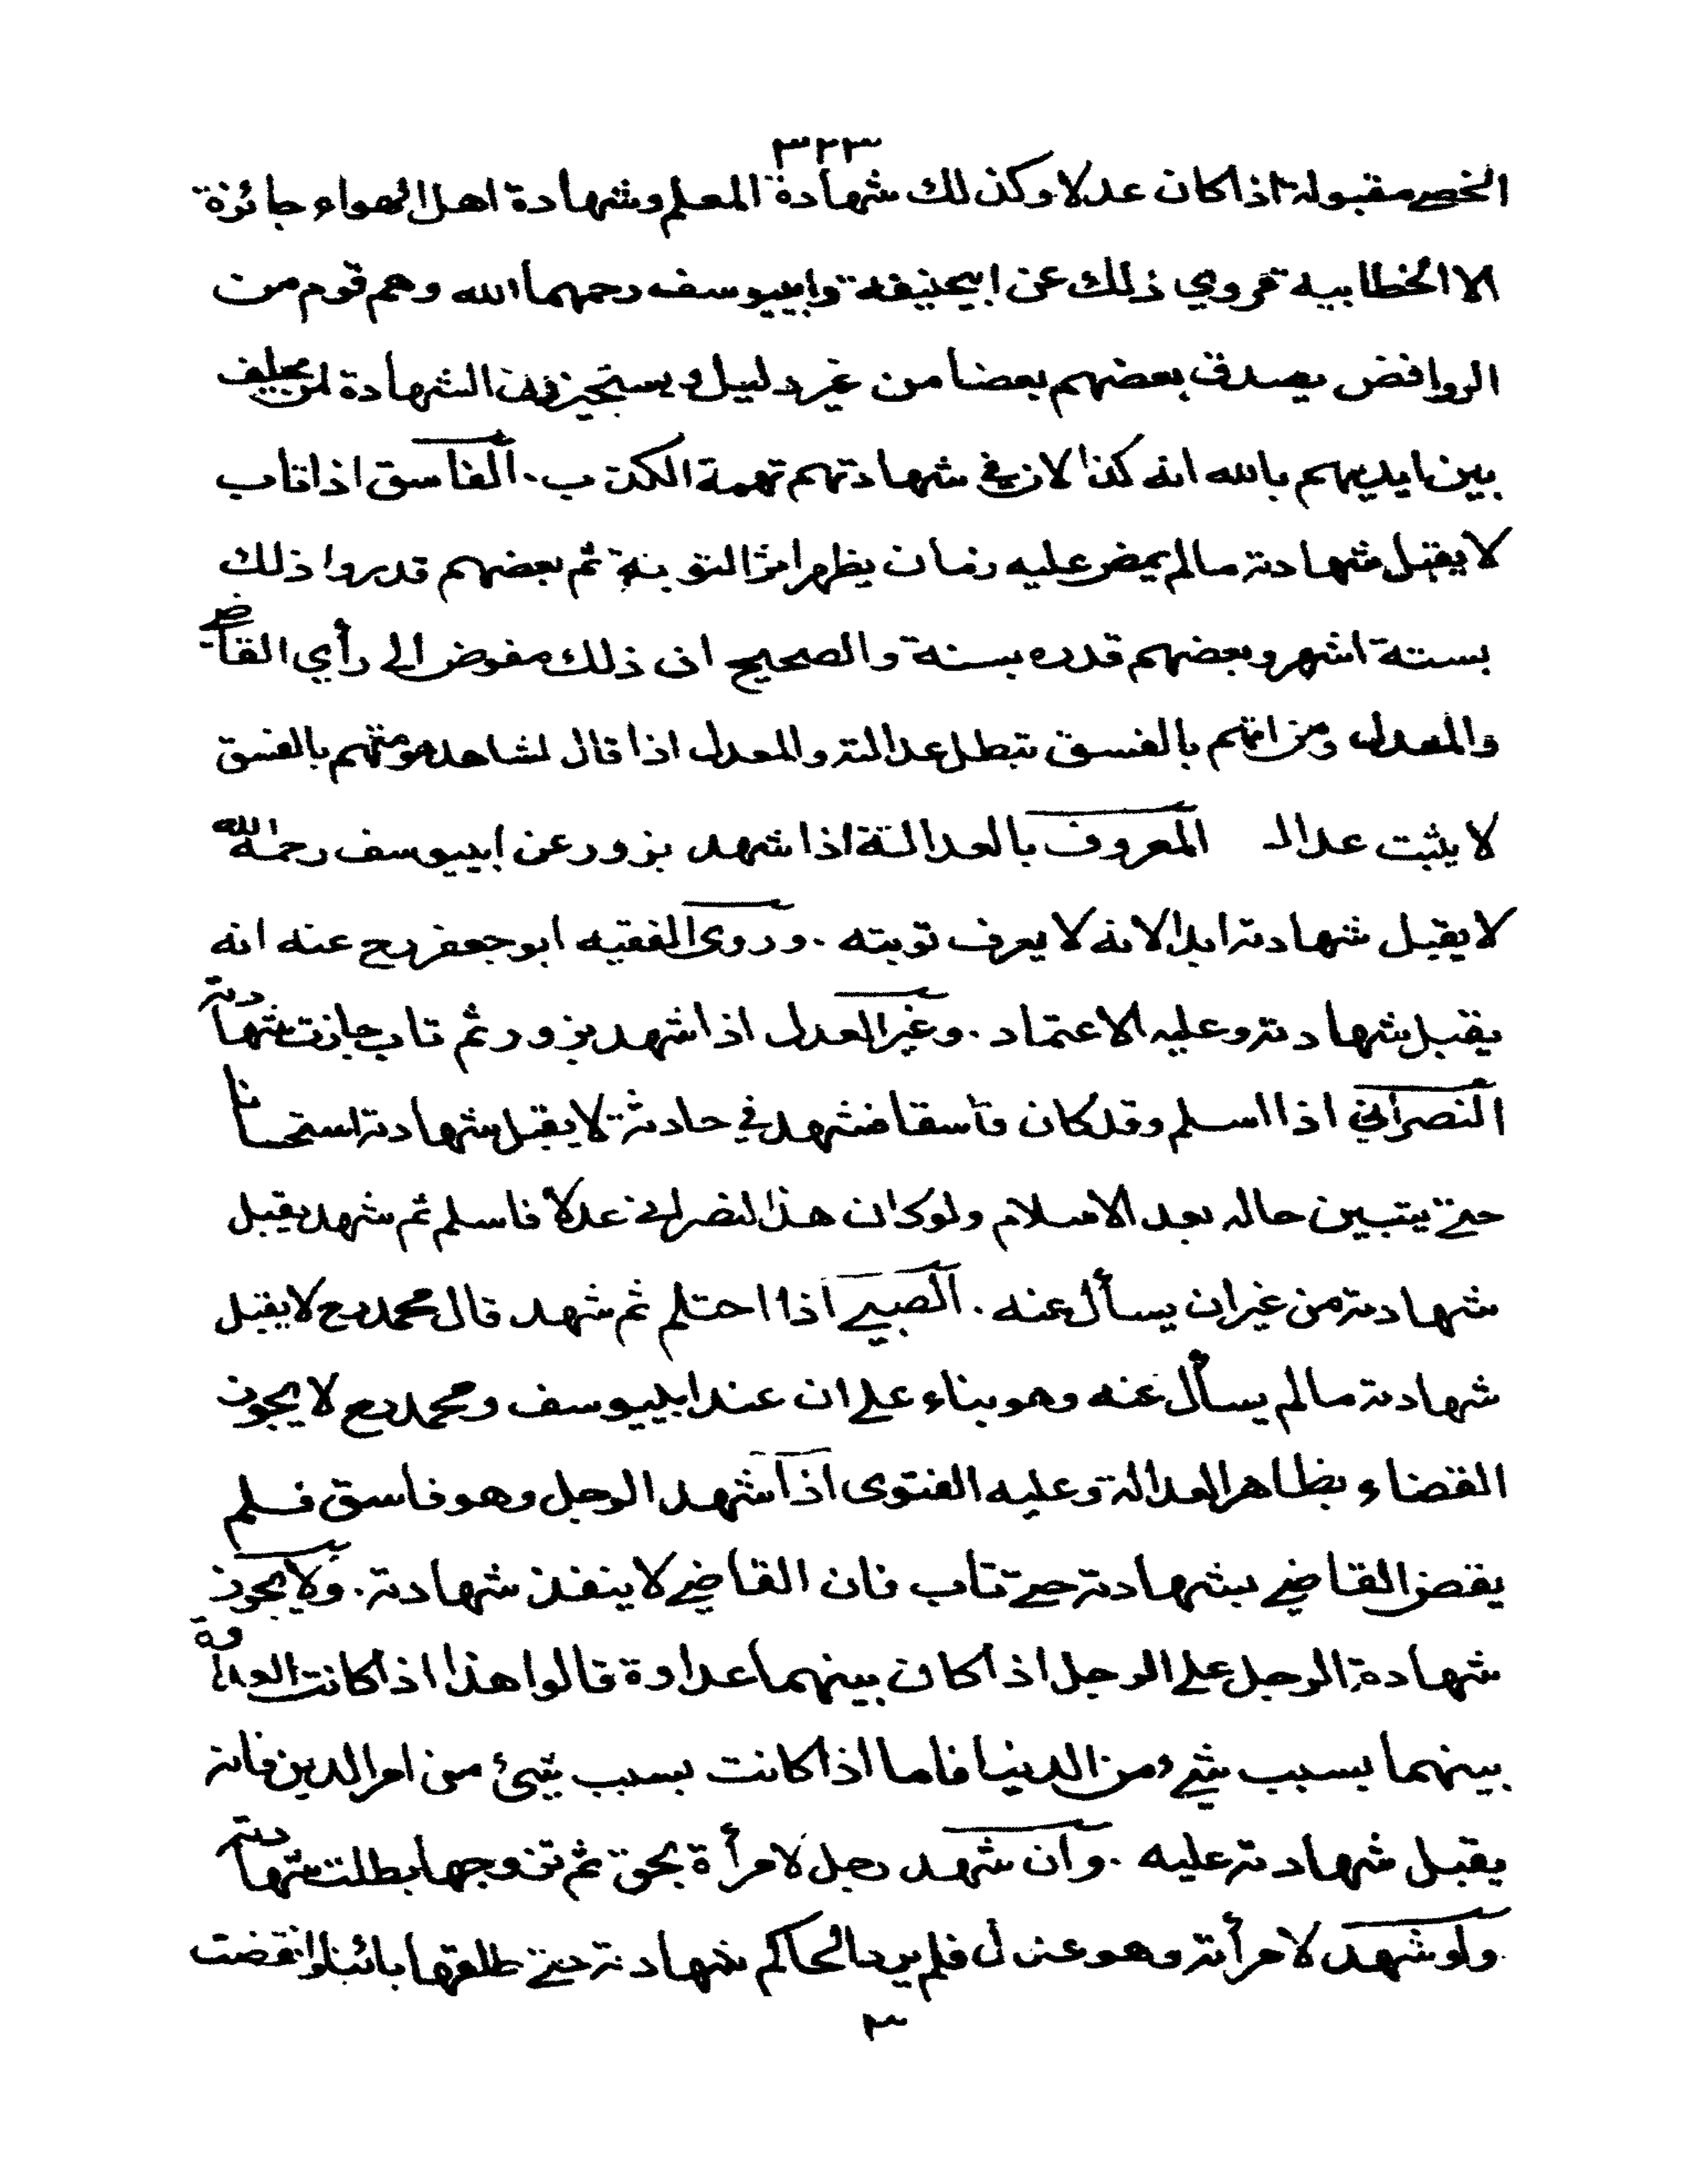 ٣٢٣
الخصي مقبولة اذا كان عدلا وكذلك شهادة المعلم وشهادة اهل الهواء جائزة
الا الخطابية مروي ذلك عن ابيحنيفة وابييوسف رحمهما الله وهم قوم من
الروافض يصدق بعضهم بعضا من غير دليل ويستجيزون الشهادة لمن يحلف
بين ايديهم بالله انه كذا لان في شهادتهم تهمة الكذب . الفاسق اذا تاب
لا يقبل شهادته مالم يمض عليه زمان يظهر اثر التوبة ثم بعضهم قدروا ذلك
بستة اشهر وبعضهم قدره بسنة والصحيح ان ذلك مفوض الى رأي القاضي
والمعدل ومن اتهم بالفسق تبطل عدالته والمعدل اذا قال لشاهد هو متهم بالفسق
لا يثبت عدال المعروف بالعدالة اذا شهد بزور عن ابييوسف رحمه الله
لا يقبل شهادته ابدا لانه لا يعرف توبته . وروى الفقيه ابو جعفر رح عنه انه
يقبل شهادته وعليه الاعتماد . وغير العدل اذا شهد بزور ثم تاب جازت شهادته
النصراني اذا اسلم وقد كان فاسقا فشهد في حادثة لا يقبل شهادته استحسانا
حتى يتبين حاله بعد الاسلام ولو كان هذا النصراني عدلا فاسلم ثم شهد يقبل
شهادته من غير ان يسأل عنه . الصبي اذا احتلم ثم شهد قال محمد رح لا يقبل
شهادته مالم يسأل عنه وهو بناء على ان عند ابييوسف ومحمد رح لا يجوز
القضاء بظاهر العدالة وعليه الفتوى اذا شهد الرجل وهو فاسق فلم
يقض القاضي بشهادته حتى تاب فان القاضي لا ينفذ شهادته . ولا يجوز
شهادة الرجل على الرجل اذا كان بينهما عداوة قالوا هذا اذا كانت العداوة
بينهما بسبب شيء من الدنيا فاما اذا كانت بسبب شيئ من امر الدين فانه
يقبل شهادته عليه . وان شهد رجل لامرأة بحق ثم تزوجها بطلت شهادته
ولو شهد لامرأته وهو عدل فلم يرد الحاكم شهادته حتى طلقها بائنا وانقضت
٣